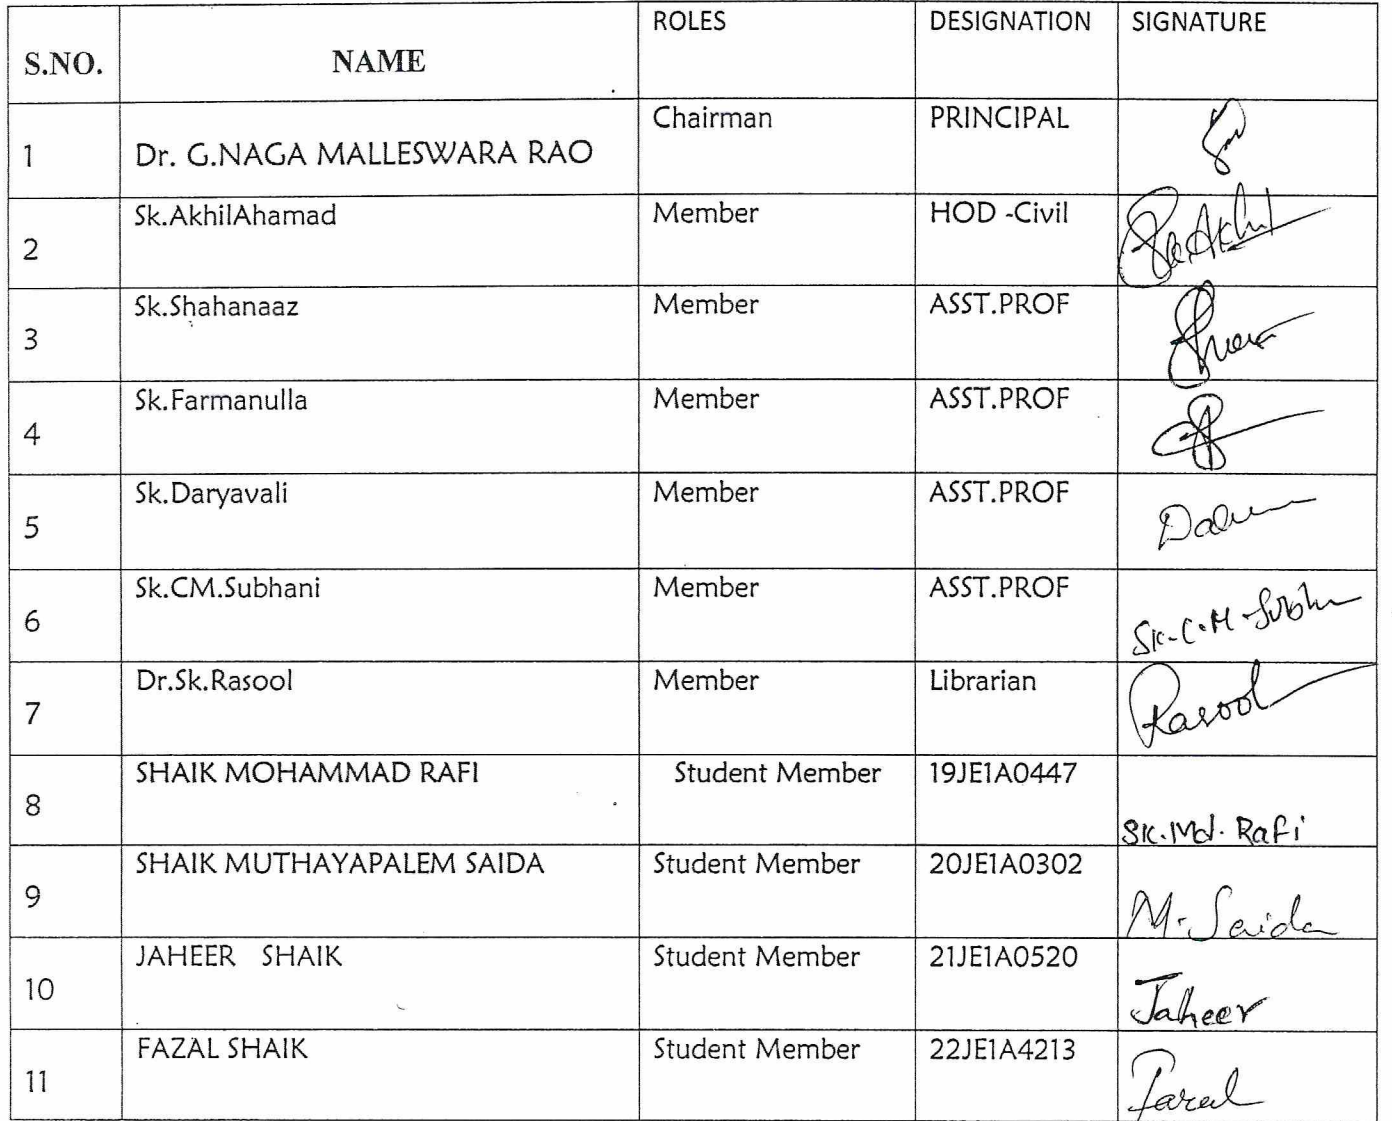 S.NO. NAME ROLES DESIGNATION SIGNATURE
1 Dr. G.NAGA MALLESWARA RAO Chairman PRINCIPAL
2 Sk.AkhilAhamad Member HOD -Civil Sk.Akhil
3 Sk.Shahanaaz Member ASST.PROF
4 Sk.Farmanulla Member ASST.PROF
5 Sk.Daryavali Member ASST.PROF
6 Sk.CM.Subhani Member ASST.PROF Sk.C.M.
7 Dr.Sk.Rasool Member Librarian Rasool
8 SHAIK MOHAMMAD RAFI Student Member 19JE1A0447 SK.Md. Rafi
9 SHAIK MUTHAYAPALEM SAIDA Student Member 20JE1A0302 M.Saida
10 JAHEER SHAIK Student Member 21JE1A0520 Jaheer
11 FAZAL SHAIK Student Member 22JE1A4213